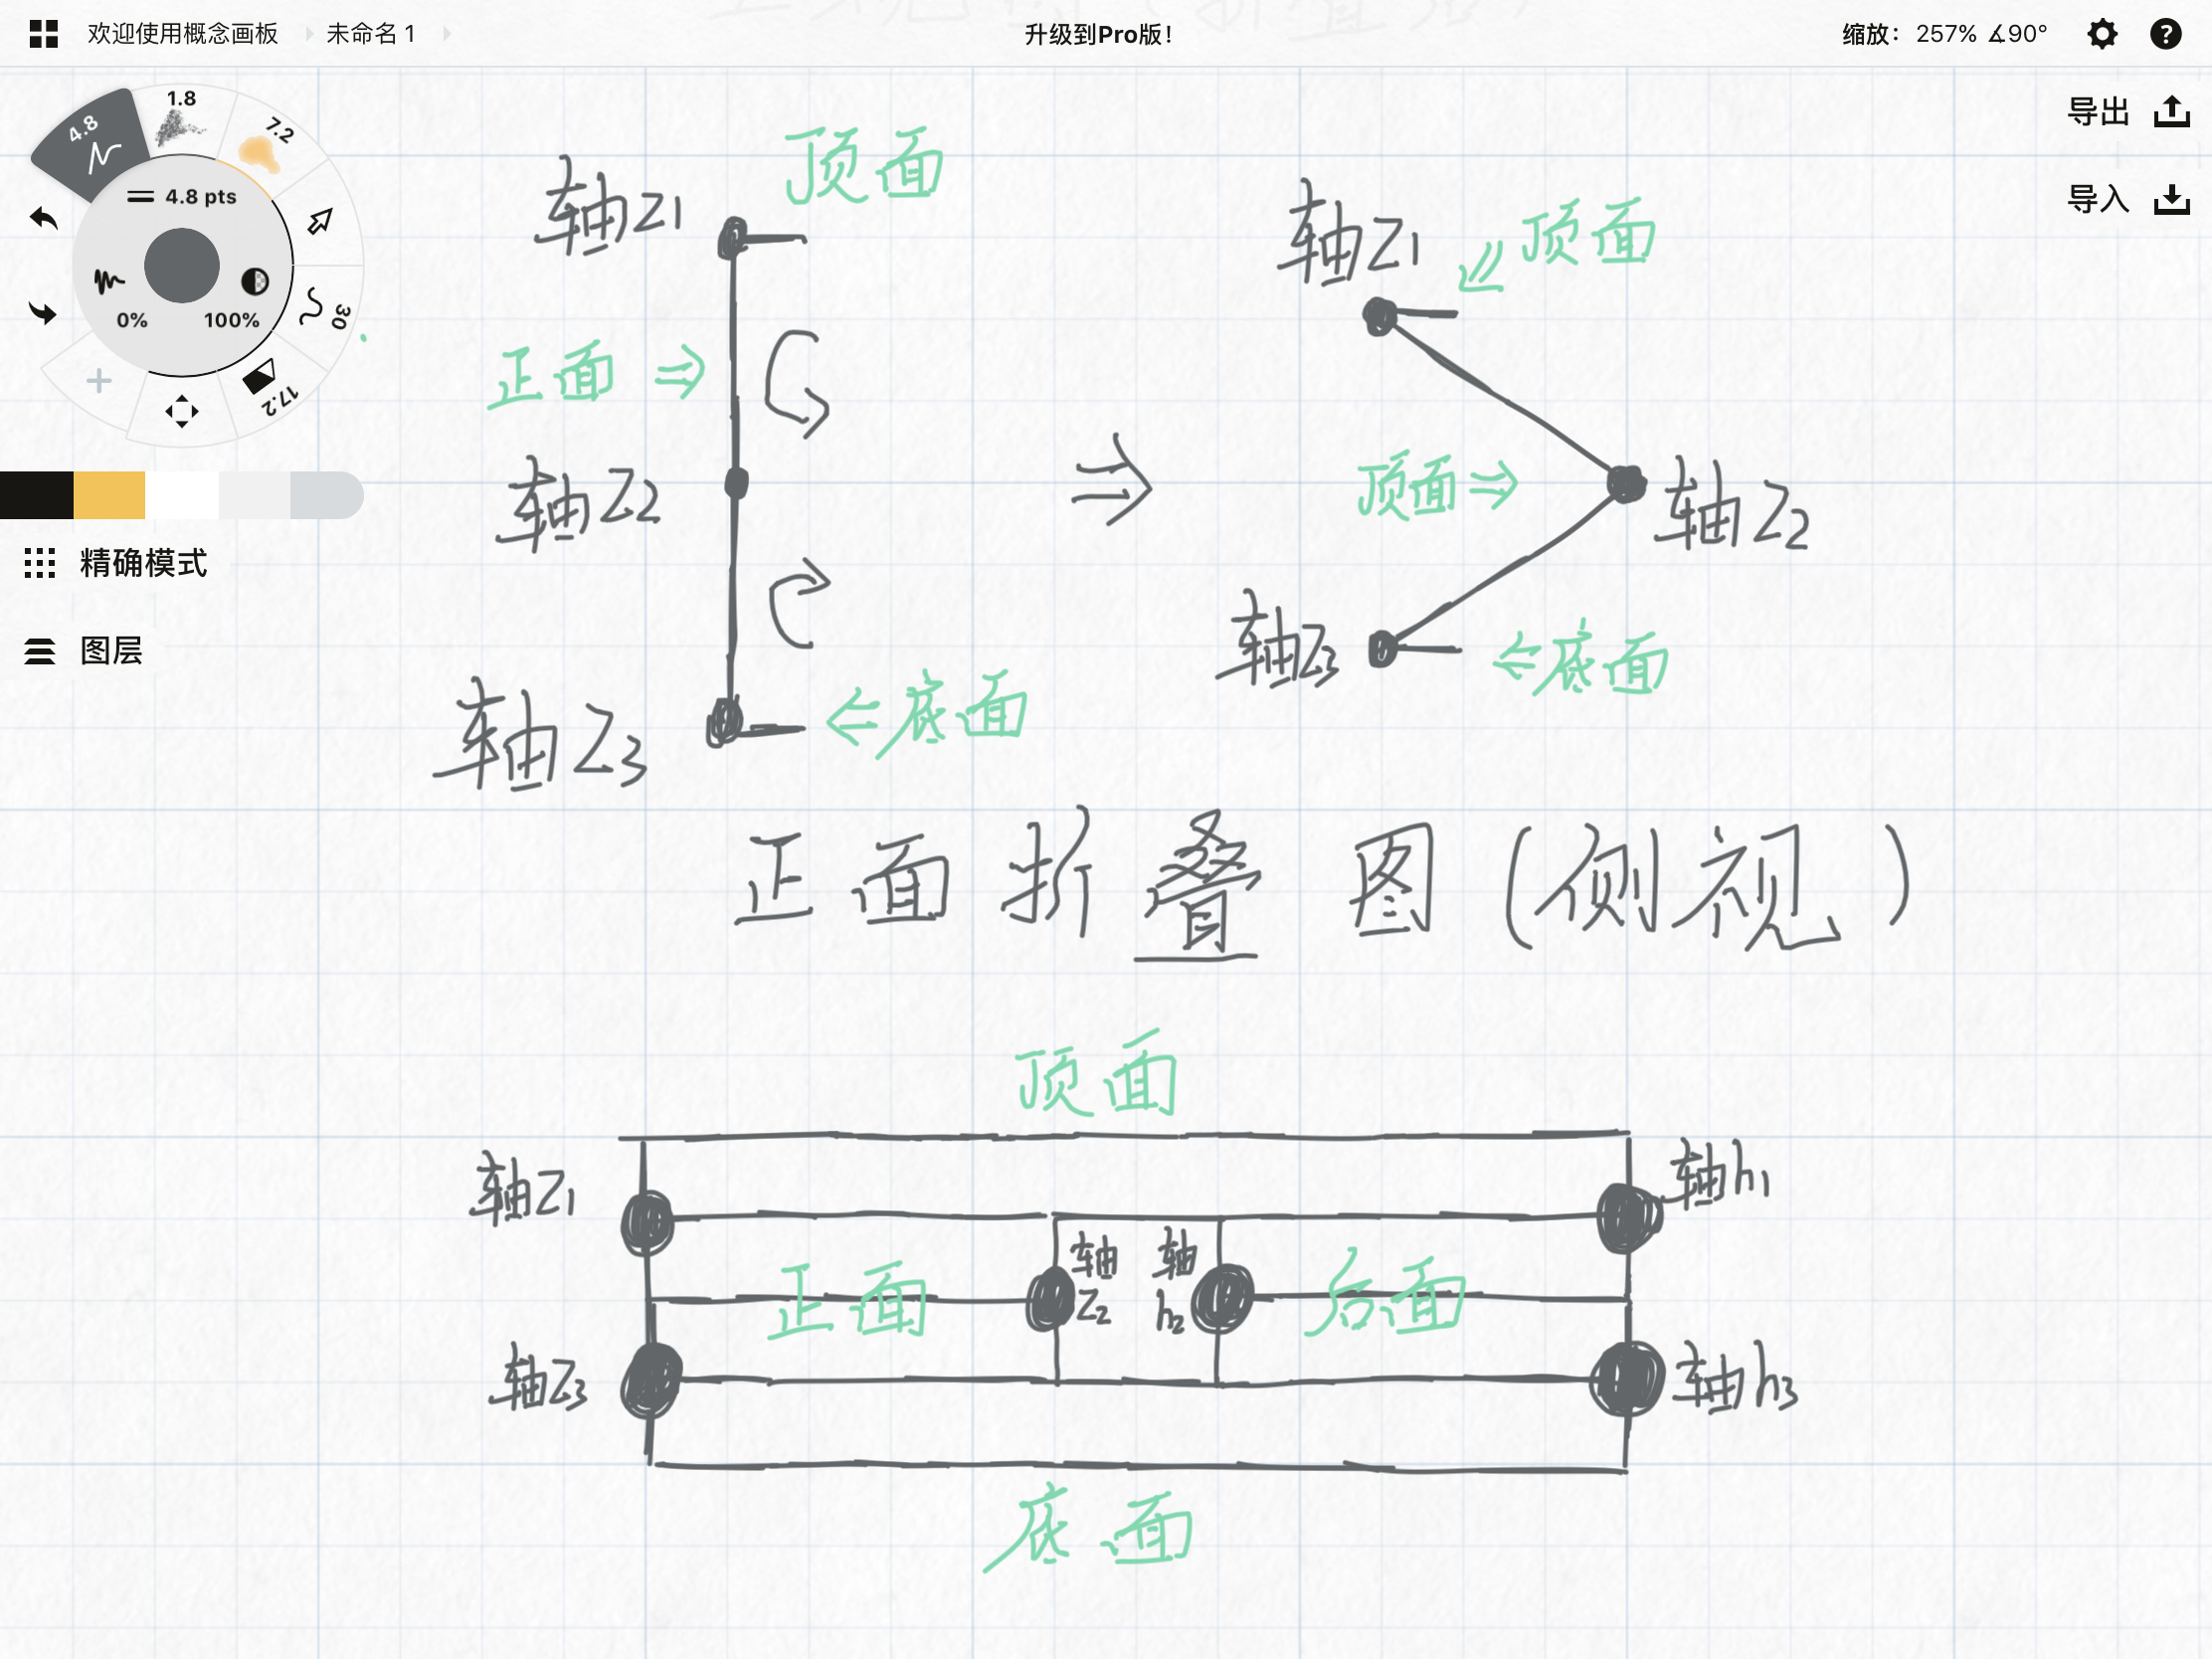 欢迎使用概念画板 未命名 1
升级到Pro版！
缩放： 257% ∡90°
导出
导入
4.8
1.8
7.2
4.8 pts
0%
100%
30
17.2
精确模式
图层
轴Z1
顶面
正面 ⇒
轴Z2
轴Z3
⇐底面
轴Z1
顶面
顶面⇒
轴Z2
轴Z3
⇐底面
正面折叠图(侧视)
顶面
轴Z1
轴h1
正面
轴Z2
轴h2
后面
轴Z3
轴h3
底面